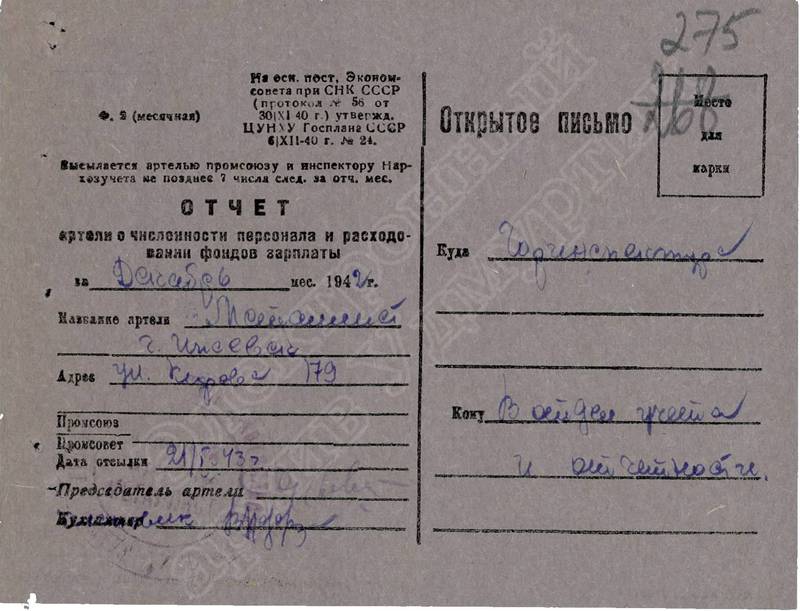 275
Ф. 2 (месячная)
На осн. пост. Эконом-
совета при СНК СССР
(протокол № 56 от
30|XI 40 г.) утвержд.
ЦУНХУ Госплана СССР
6|XII-40 г. № 24.
Высылается артелью промсоюзу и инспектору Нар-
хозучета не позднее 7 числа след. за отч. мес.
ОТЧЕТ
артели о численности персонала и расходо-
вании фондов зарплаты
за Декабрь мес. 1942 г.
Название артели Металлист
г. Ижевск
Адрес ул. Кирова 179
Промсоюз
Промсовет
Дата отсылки 21/I 43 г
Председатель артели
Бухгалтер
Открытое письмо
Место
для
марки
Куда Горинспектура
Кому В отдел учета
и отчетности.